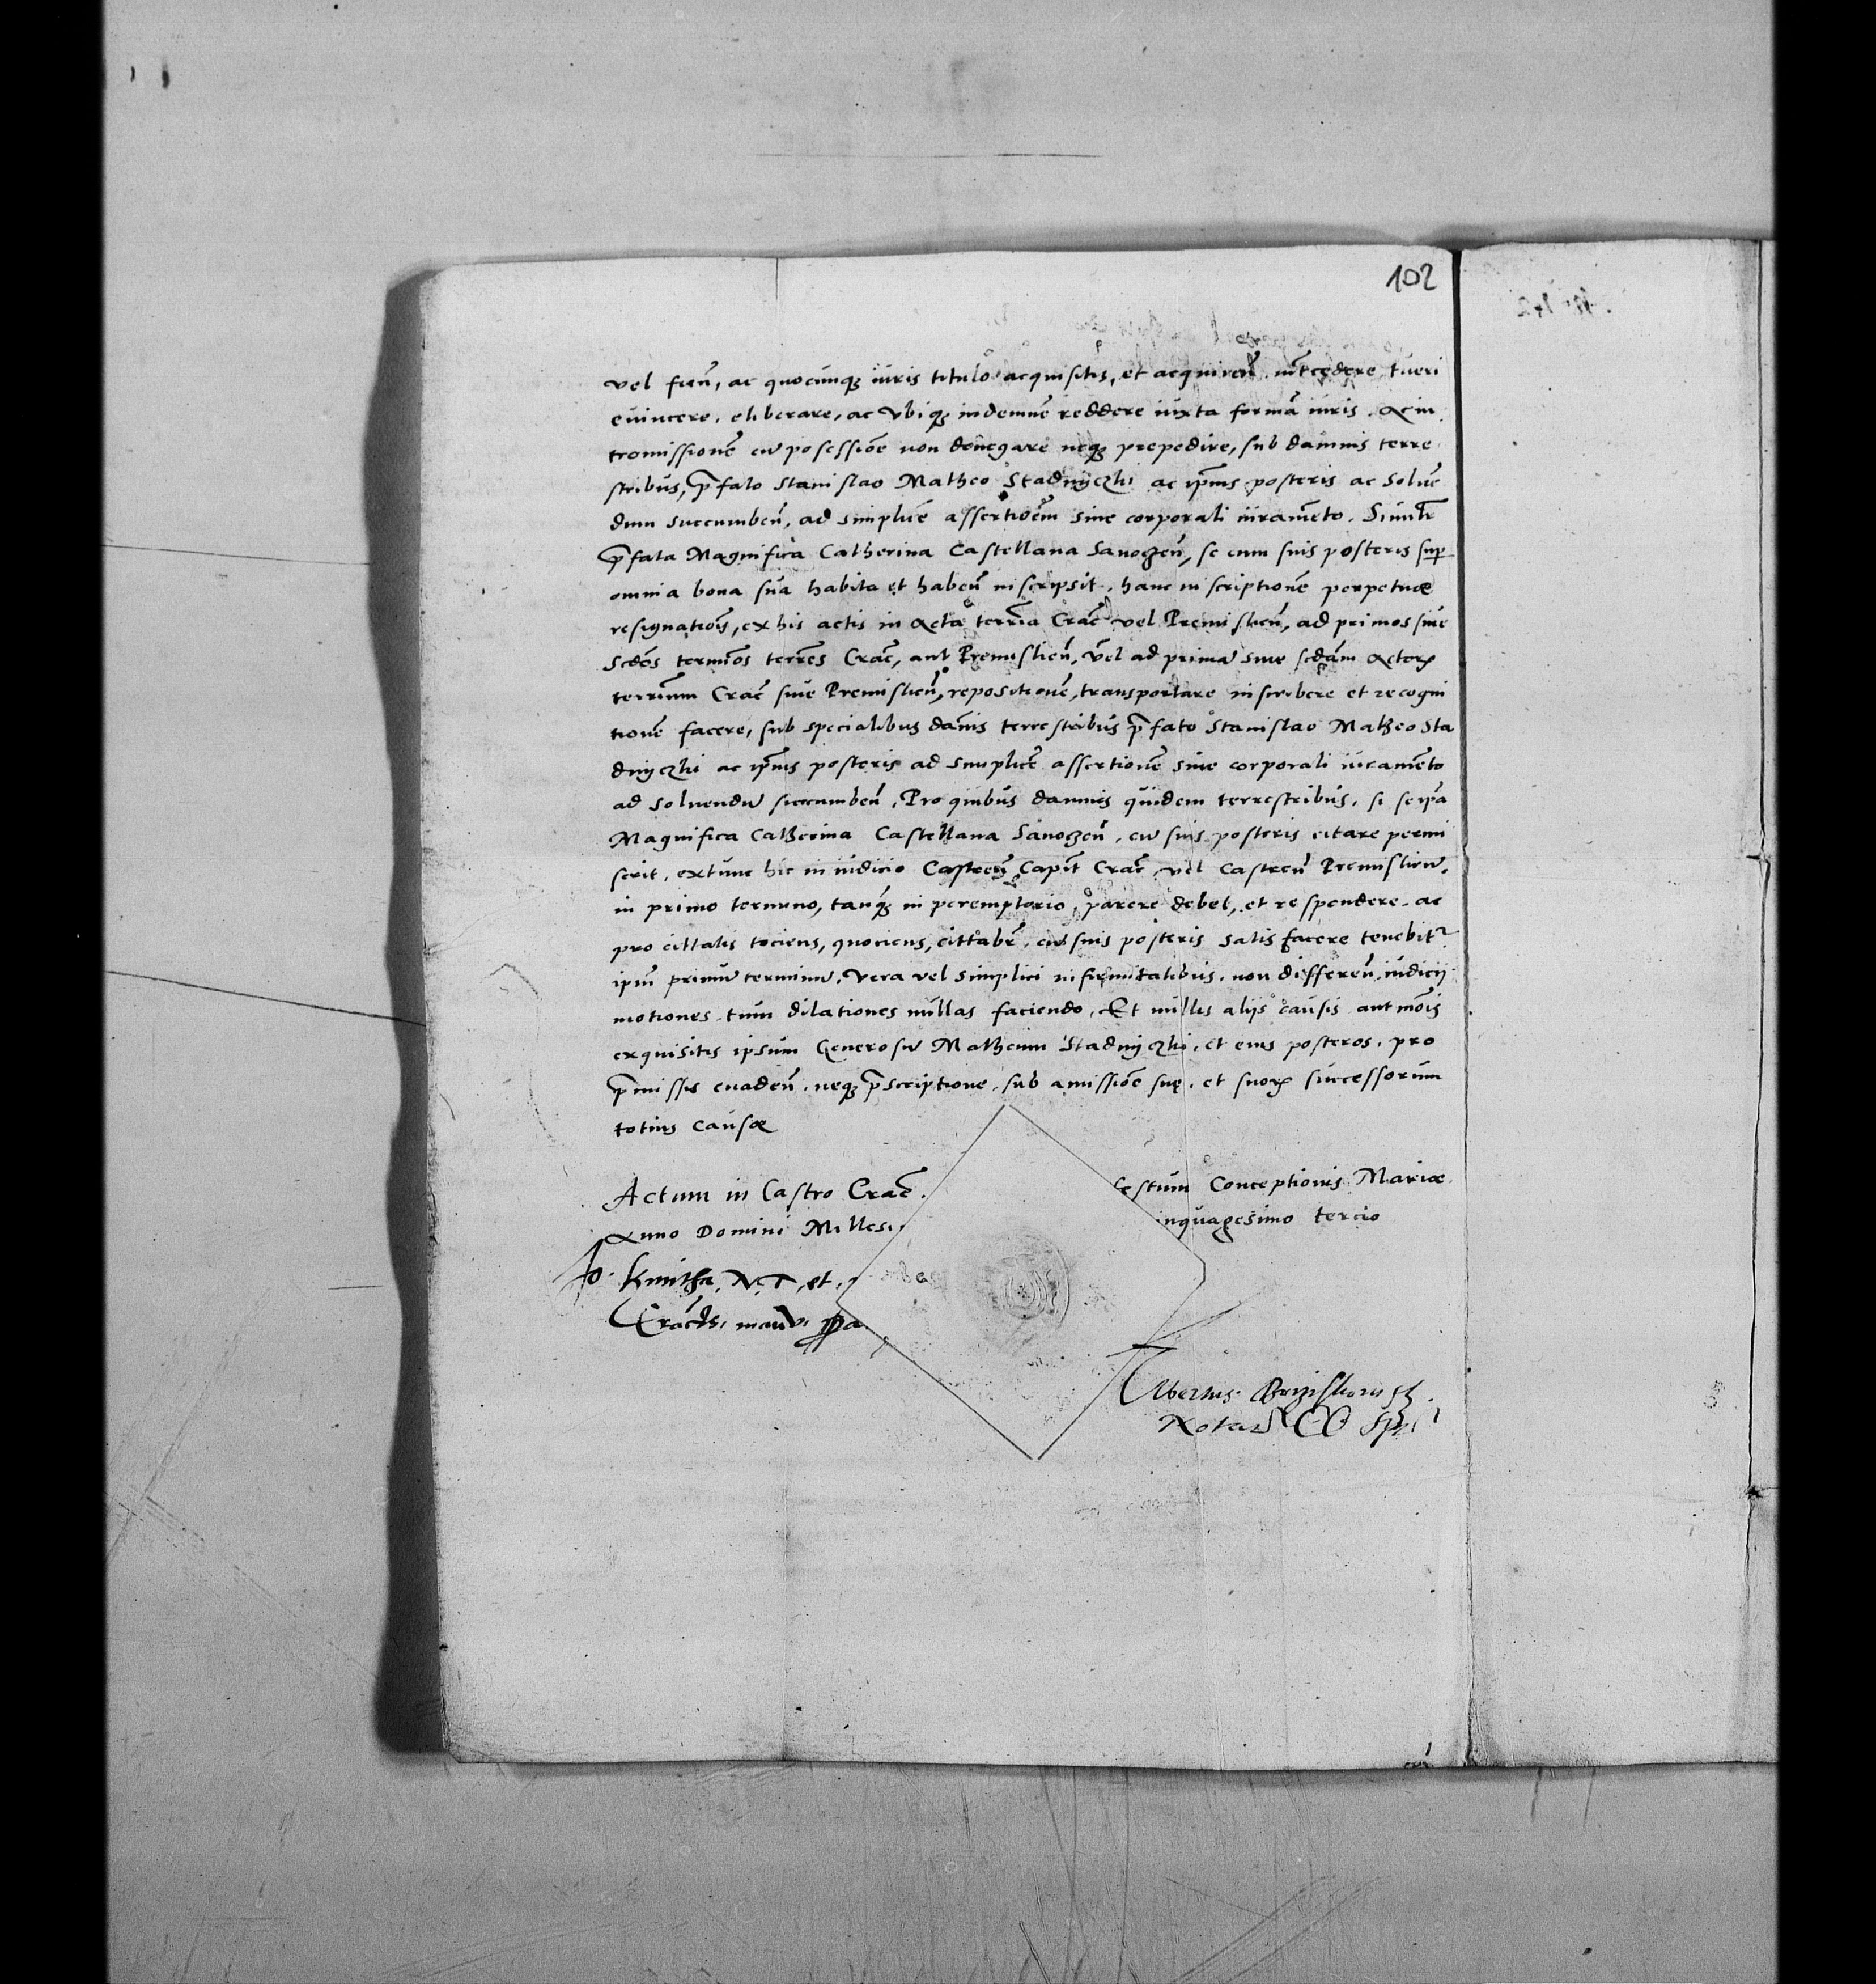 102
vel fień, ac quocunq₃ iuris titulo acquisitis, et acquireń intcedere tueri
euincere, eliberare, ac vbiq₃ indemnē reddere iuxta formā iuris. Ac in
tromissionē cū posessiōe non denegare neq₃ prepedire, sub damnis terre
stribus, p̄fato Stanislao Matheo Stadnyczki ac ip̄ius posteris ac soluē
dum succumbeń, ad simplicē assertioēm sine corporali iuramēto. Similr̄
p̄fata Magnifica Catherina Castellana Sanoczeń, se cum suis posteris sup
omnia bona sua habita et habeń inscripsit, hanc inscriptionē perpetuæ
resignatiōis, ex his actis in Acta terrīa Crac̄ vel Premislień, ad primos siue
Scdōs termīos terrēs Crac̄, aut Premislień, vel ad primā siue scdām Actoꝝ
terrium Crac̄ siue Premislień, repositionē, transportare inscribere et recogni
tionē facere, sub specialibus damīs terrestribus p̄fato Stanislao Matheo Sta
dnyczki ac ip̄ius posteris ad simplicē assertionē siue corporali iuramēto
ad soluendū succumbeń, Pro quibus damnis quidem terrestribus, si se ip̄a
Magnifica Catherina Castellana Sanoczeń, cū suis posteris citare permi
serit, extunc hic in iudicio Castreń Capit̄ Crac̄ vel Castreń Premislień,
in primo termino, tanq₃ in peremptorio, parere debet, et respondere ac
pro cittatis tociens, quociens, cittabr̄, cū suis posteris satis facere tenebitr
ipm̄ primū terminū, vera vel simplici infirmitatibus, non differeń, iudicij
motiones, tum dilationes nullas faciendo, Et nullis alijs causis aut mōis
exquisitis ipsum Generosū Matheum Stadnyczki, et eius posteros, pro
p̄missis euadeń, neq₃ p̄scriptione, sub amissiōe suę, et suoꝝ successorum
totius causæ
Actum in Castro Crac̄. festum Conceptionis Mariæ
Anno Domini Milles nquagesimo tercio
Kmitha, et
manu, ppa
Notar